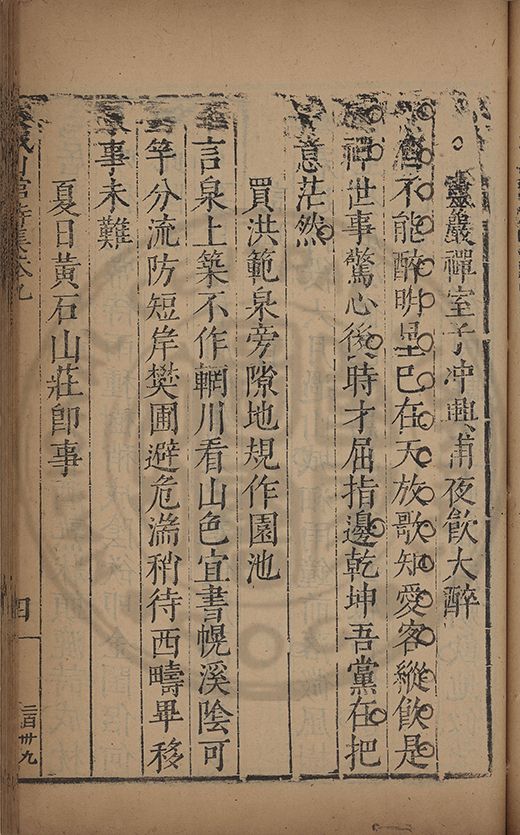 靈巖禪室子冲輿甫夜飲大醉
不能醉明星已在天放歌知愛客縱飲是
禪世事驚心後時才屈指邊乾坤吾黨在把
意茫然
買洪範泉旁隙地規作園池
言泉上築不作輞川看山色宜書幌溪陰可
竿分流防短岸樊圃避危湍稍待西疇畢移
事未難
夏日黃石山莊即事
城山館詩集卷九
四
二百卅九